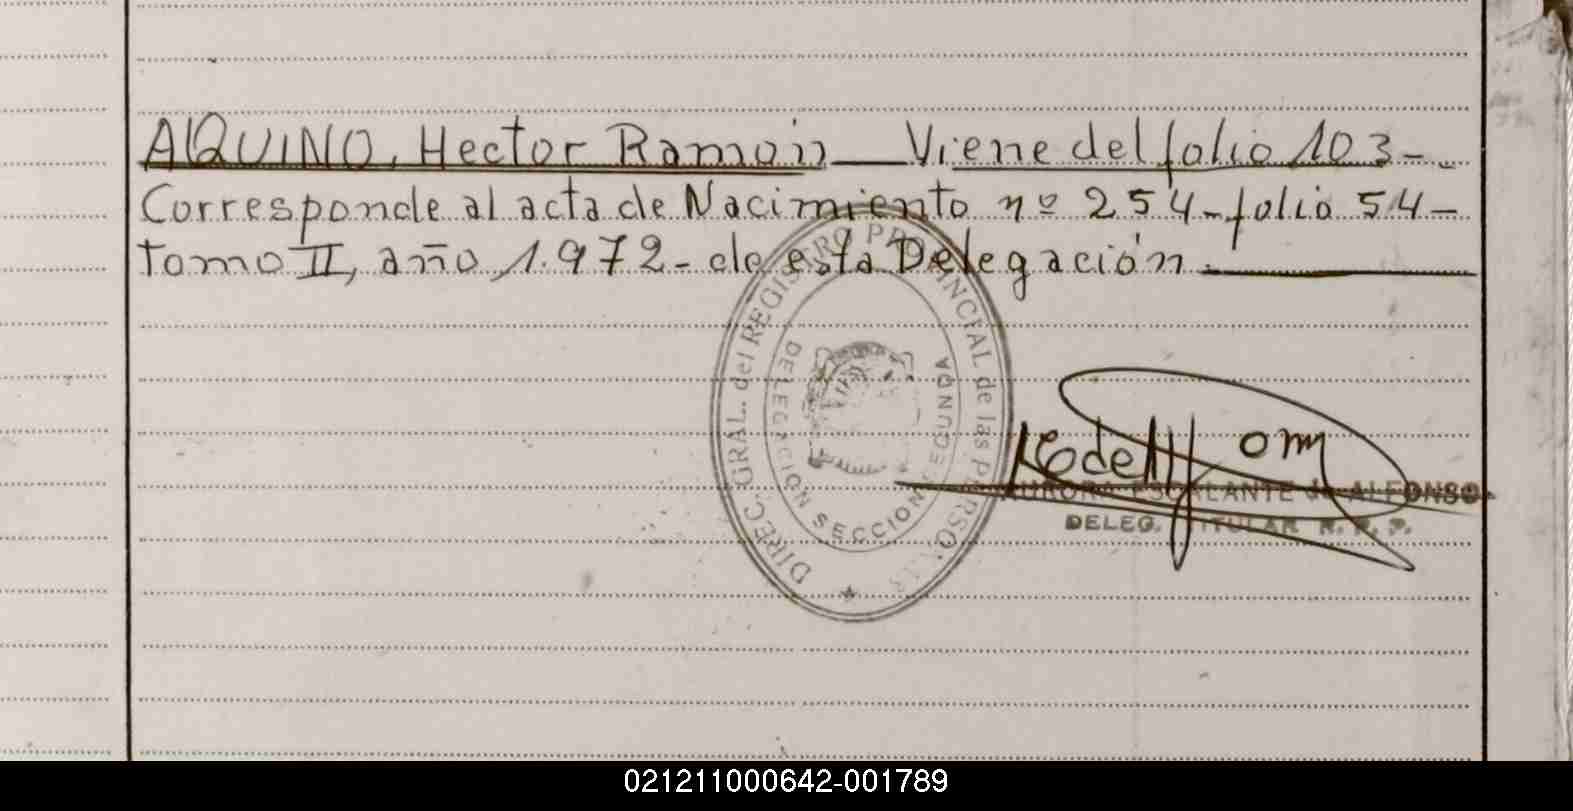 AQUINO, Hector Ramón — Viene del folio 103 -
Corresponde al acta de Nacimiento nº 254 - folio 54 -
tomo II, año 1.972 - de esta Delegación.
DIREC. GRAL. del REGISTRO PROVINCIAL de las PERSONAS
DELEGACION SECCION SEGUNDA
AURORA ESCALANTE de ALFONSO
DELEG. TITULAR R. P. P.
021211000642-001789